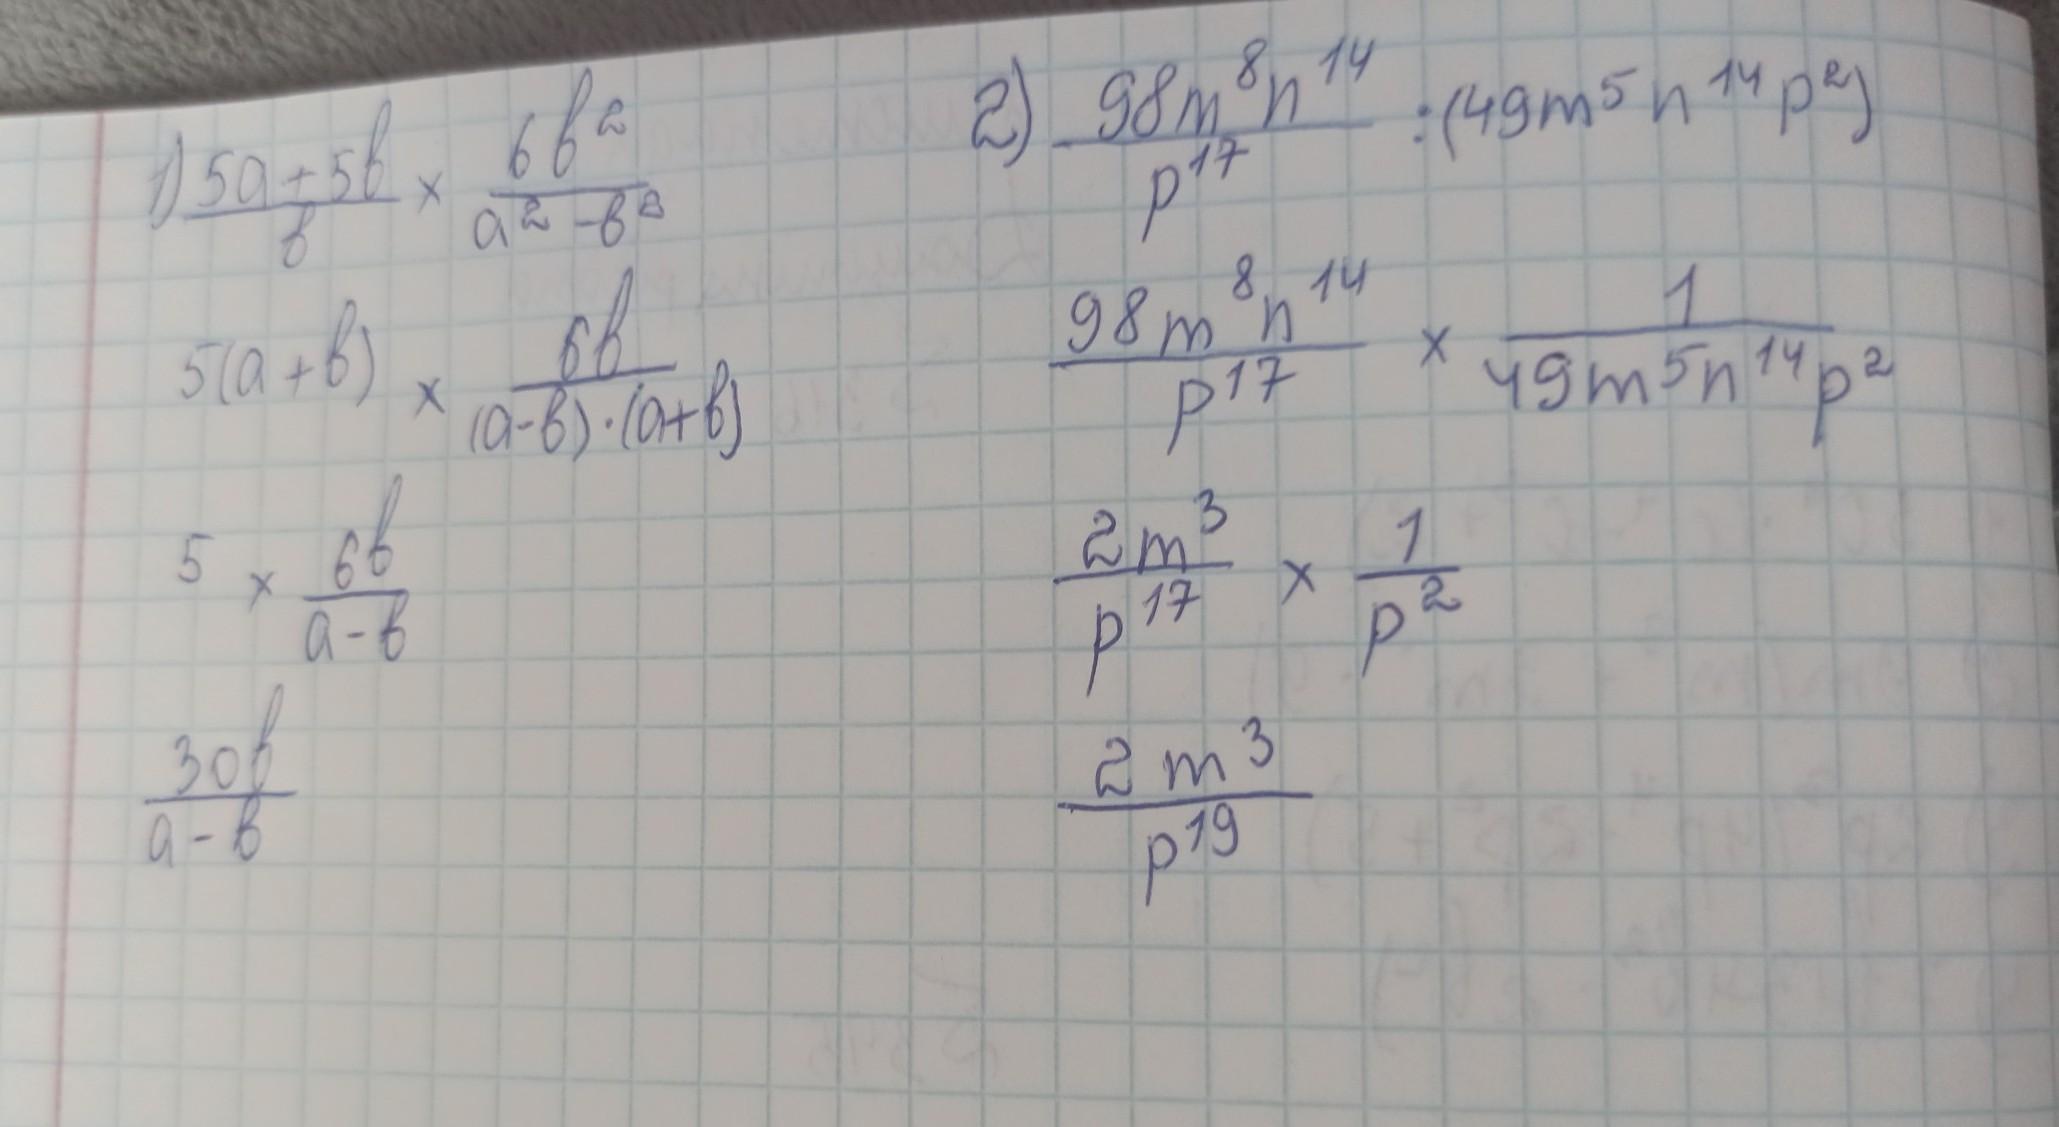 1) (5a+5b)/b × 6b²/(a²-b²)
5(a+b) × 6b/((a-b)·(a+b))
5 × 6b/(a-b)
30b/(a-b)
2) 98m⁸n¹⁴/p¹⁷ : (49m⁵n¹⁴p²)
98m⁸n¹⁴/p¹⁷ × 1/(49m⁵n¹⁴p²)
2m³/p¹⁷ × 1/p²
2m³/p¹⁹